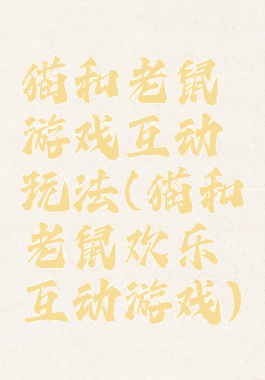 猫和老鼠
游戏互动
玩法(猫和
老鼠欢乐
互动游戏)